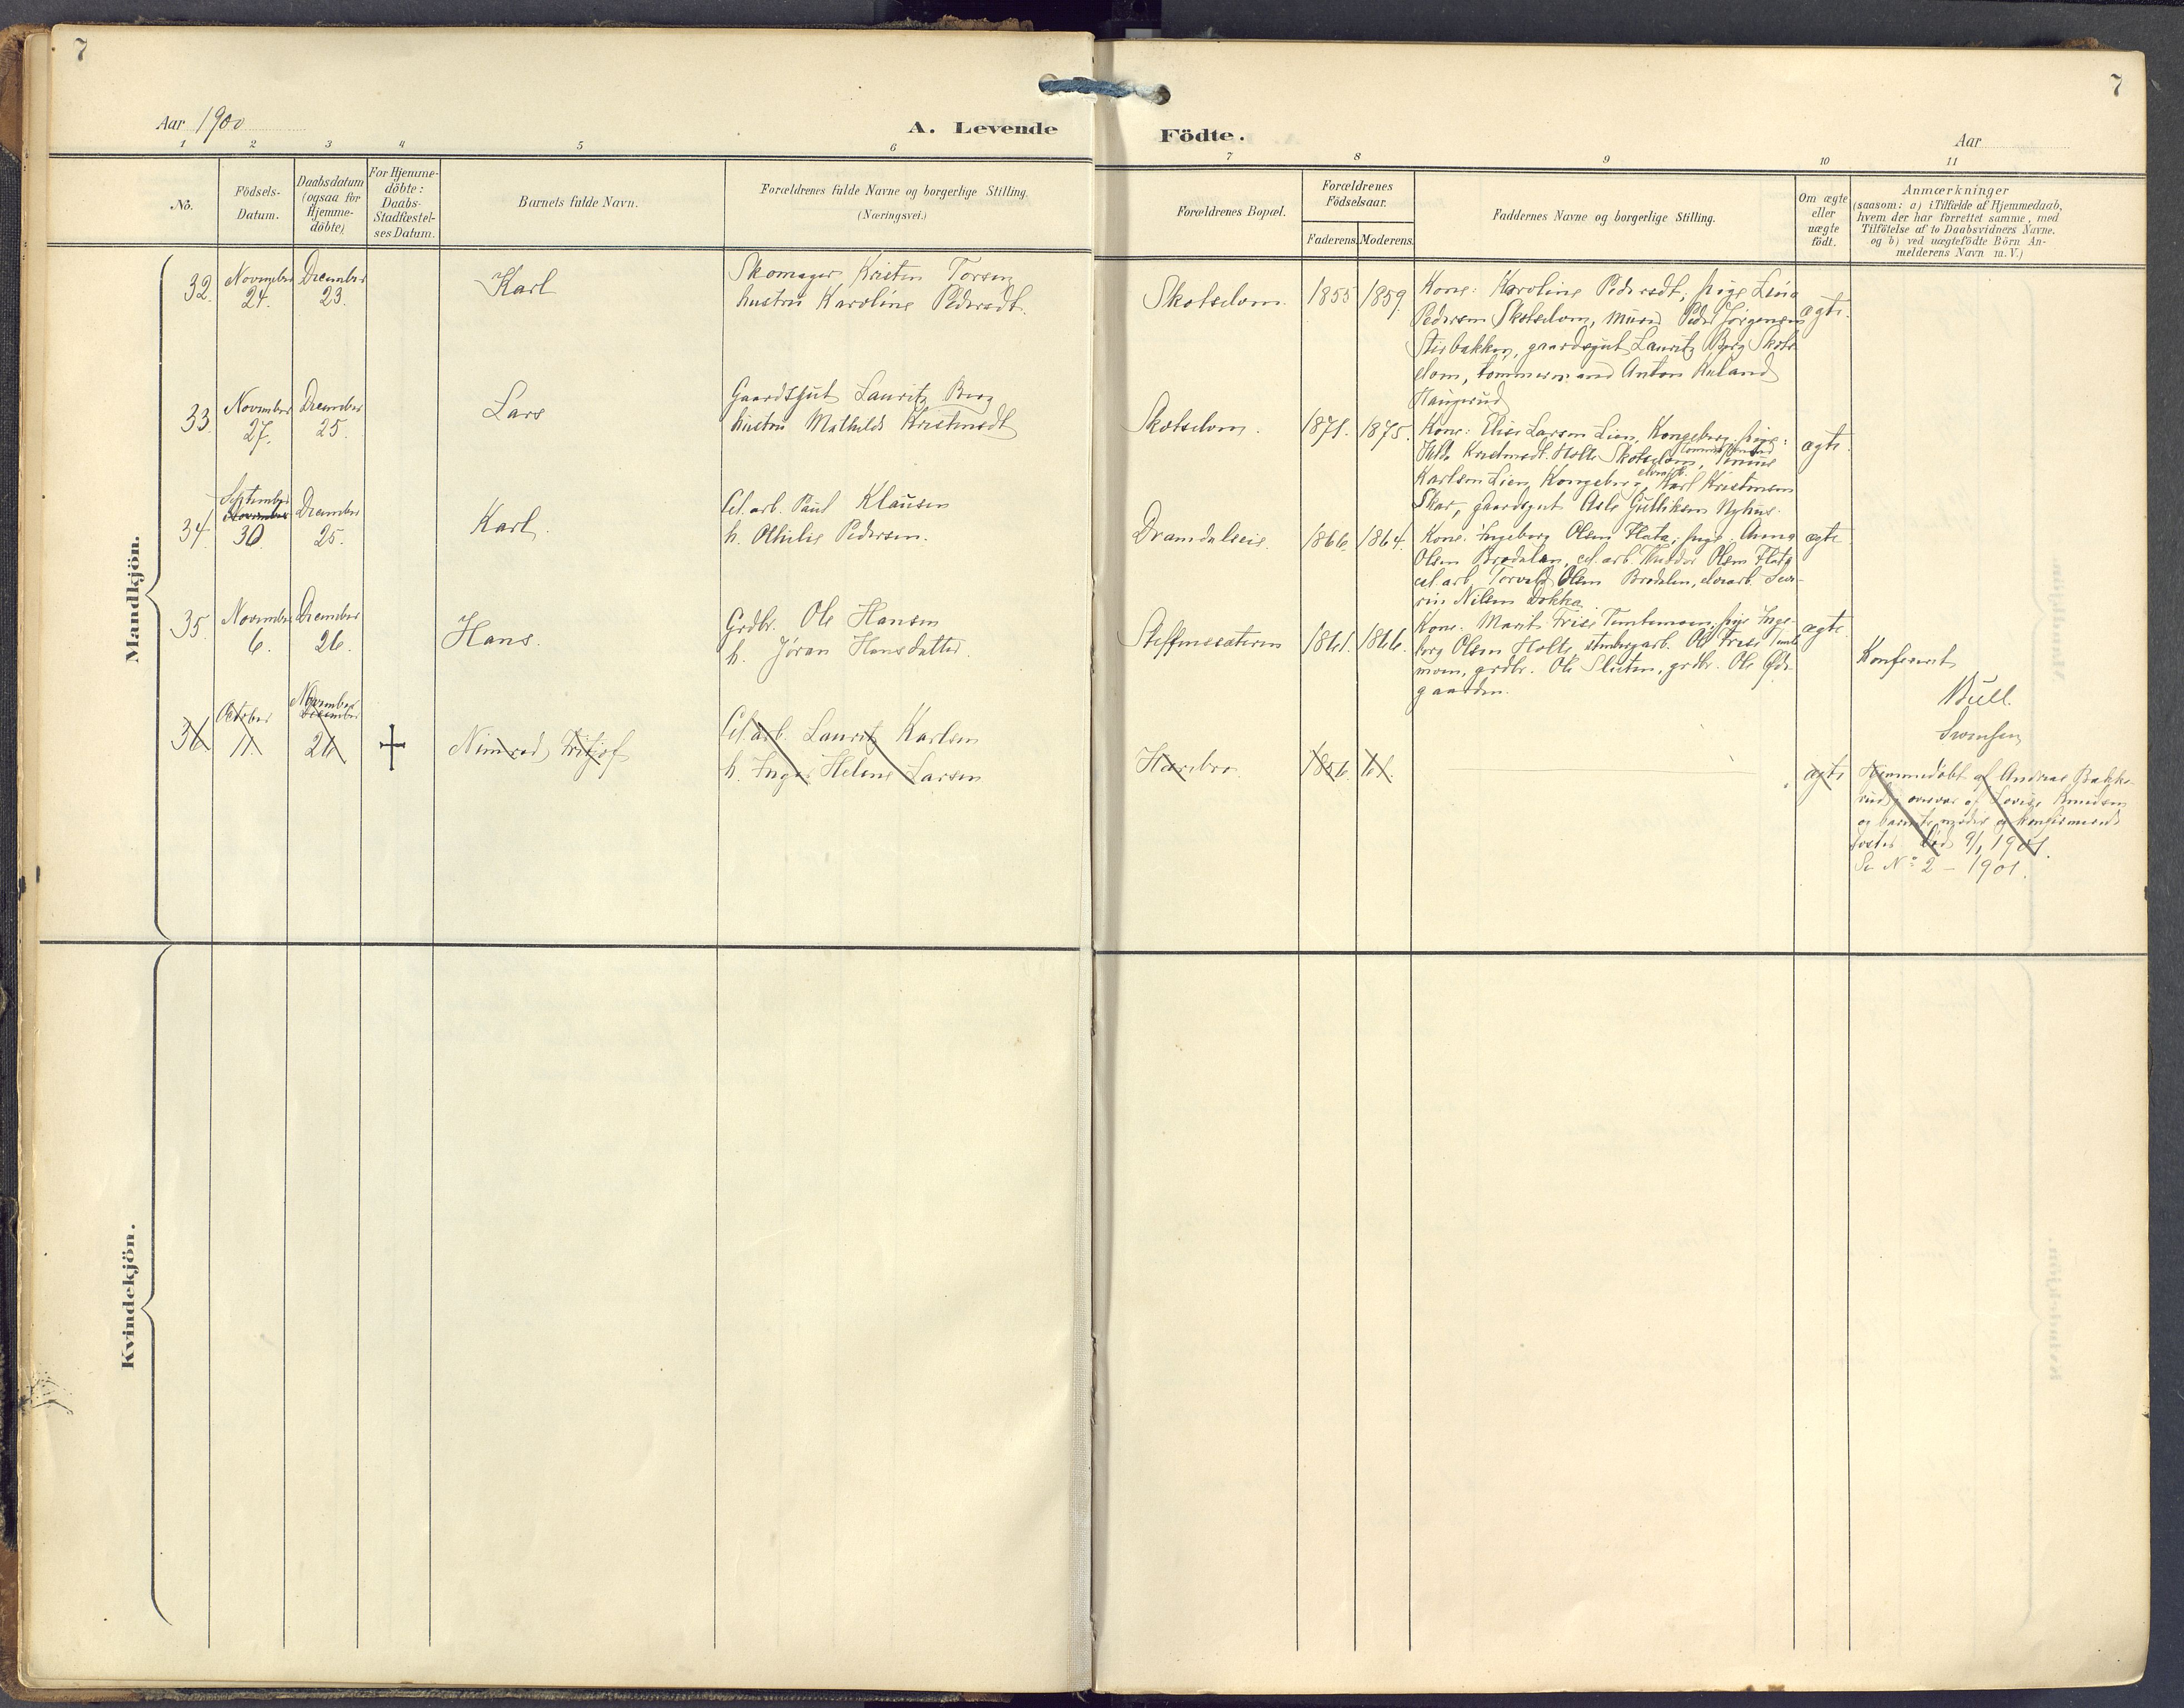 7
7
Aar 1900
A. Levende
Födte.
Aar
1 2 3 4 5 6 7 8 9 10 11
No.
Födsels-
Datum.
Daabsdatum
(ogsaa for
Hjemme-
döbte)
For Hjemme-
döbte:
Daabs-
Stadfæstel-
ses Datum.
Barnets fulde Navn.
Forældrenes fulde Navne og borgerlige Stilling.
(Næringsvei.)
Forældrenes Bopæl.
Forældrenes
Födselsaar.
Faderens.
Moderens.
Faddernes Navne og borgerlige Stilling.
Om ægte
eller
uægte
födt.
Anmærkninger
(saasom: a) i Tilfælde af Hjemmedaab,
hvem der har forrettet samme, med
Tilföielse af to Daabsvidners Navne.
og b) ved uægtefödte Börn An-
melderens Navn m.V.)
Mandkjön.
32. November 24. December 23. Karl
Skomager Kristen Torsen
hustru Karoline Pedersdt.
Skotselven. 1855 1859.
Kone: Karoline Pedersdt, pige Lina
Pedersen Skotselven, murer Peder Jørgensen
Sterbakken, gaardsgut Lauritz Berg Skots
elven, tømmermand Anton Ruland
Haugerud
ægte.
33. November 27. December 25. Lars
Gaardsgut Lauritz Berg
hustru Mathilde Kristensdt
Skotselven. 1871. 1875.
Kone: Elise Larsen Lien, Kongsberg, pige:
Hilda Kristensdt. Holte Skotselven,
Karlsen Lien, Kongsberg, Karl Kristensen
Skar, gaardsgut Asle Gulliksen Nyhus.
ægte
34. September November 30. December 25. Karl.
Cel. arb. Paul Klausen
h. Othilie Pedersen.
Dramdalseie. 1866. 1864.
Kone: Ingeborg Olsen Flata, pige: Anna
Olsen Bredalen, cel. arb. Olsen Flata
cel. arb Torvald Olsen Bredalen, elvearb. Seve-
rin Nilsen Dokka
ægte
35. November 6. December 26. Hans.
Grdbr. Ole Hansen
h. Jøran Hansdatter.
Steffensæteren 1861. 1866.
Kone: Marit Frise pige Inge-
borg Olsen Holte, arb. Ole Frise
moen, grdbr. Ole Sluten, grdbr. Ole Øde-
gaarden.
ægte.
Konfereret
Bull.
Svensen
36 October 11. November December 26 Nimrod Fritjof
Cel. arb. Lauritz Karlsen
h. Inger Helene Larsen
Harebro. 1856. 61.
ægte
Hjemmedöbt af Andreas Bakke-
rud, overvær af Lovise Knudsen
og barnets moder og konfirmerede
søster Död 9/1 1901.
Se No 2 - 1901.
Kvindekjön.